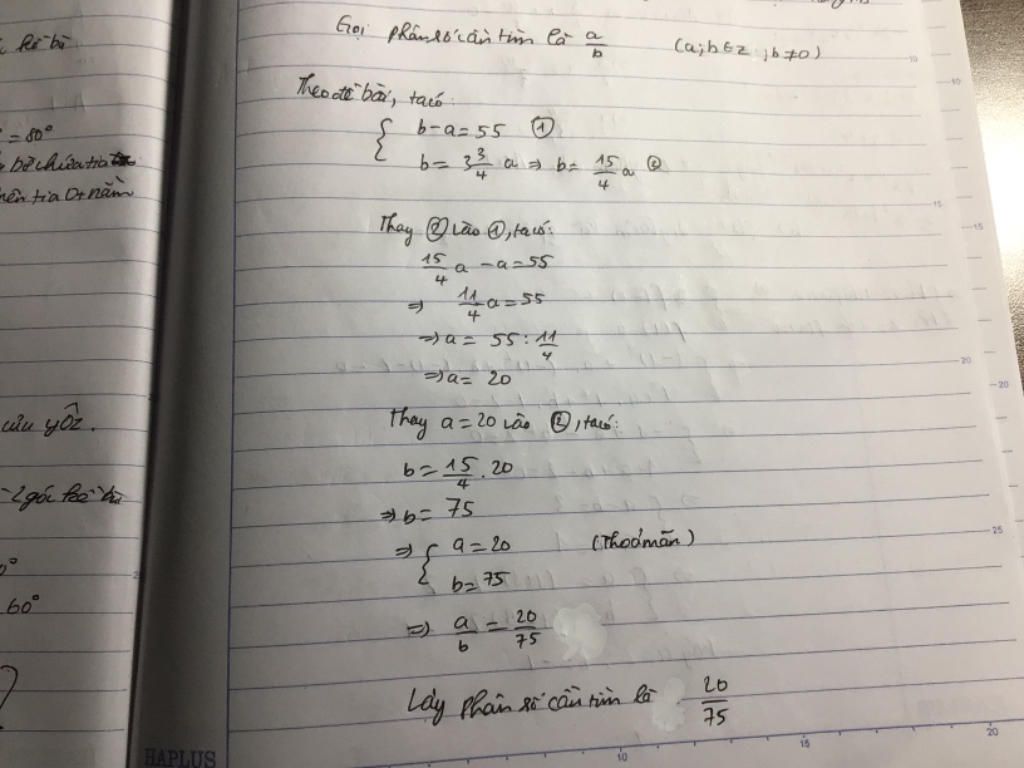 kề bù
= 80°
bờ chứa tia
nên tia Ot nằm
của yÔz.
2 góc kề bù
0°
60°
Gọi phân số cần tìm là a/b (a;b∈Z ; b≠0)
Theo đề bài, ta có:
{ b-a=55 ①
b= 3 3/4 a ⇒ b= 15/4 a ②
Thay ② vào ①, ta có:
15/4 a - a = 55
⇒ 11/4 a = 55
⇒ a = 55 : 11/4
⇒ a = 20
Thay a = 20 vào ②, ta có:
b = 15/4 . 20
⇒ b = 75
⇒ { a = 20 (Thoả mãn)
b = 75
⇒ a/b = 20/75
Vậy phân số cần tìm là 20/75
HAPLUS
10
15
20
10
15
20
25
15
20
2